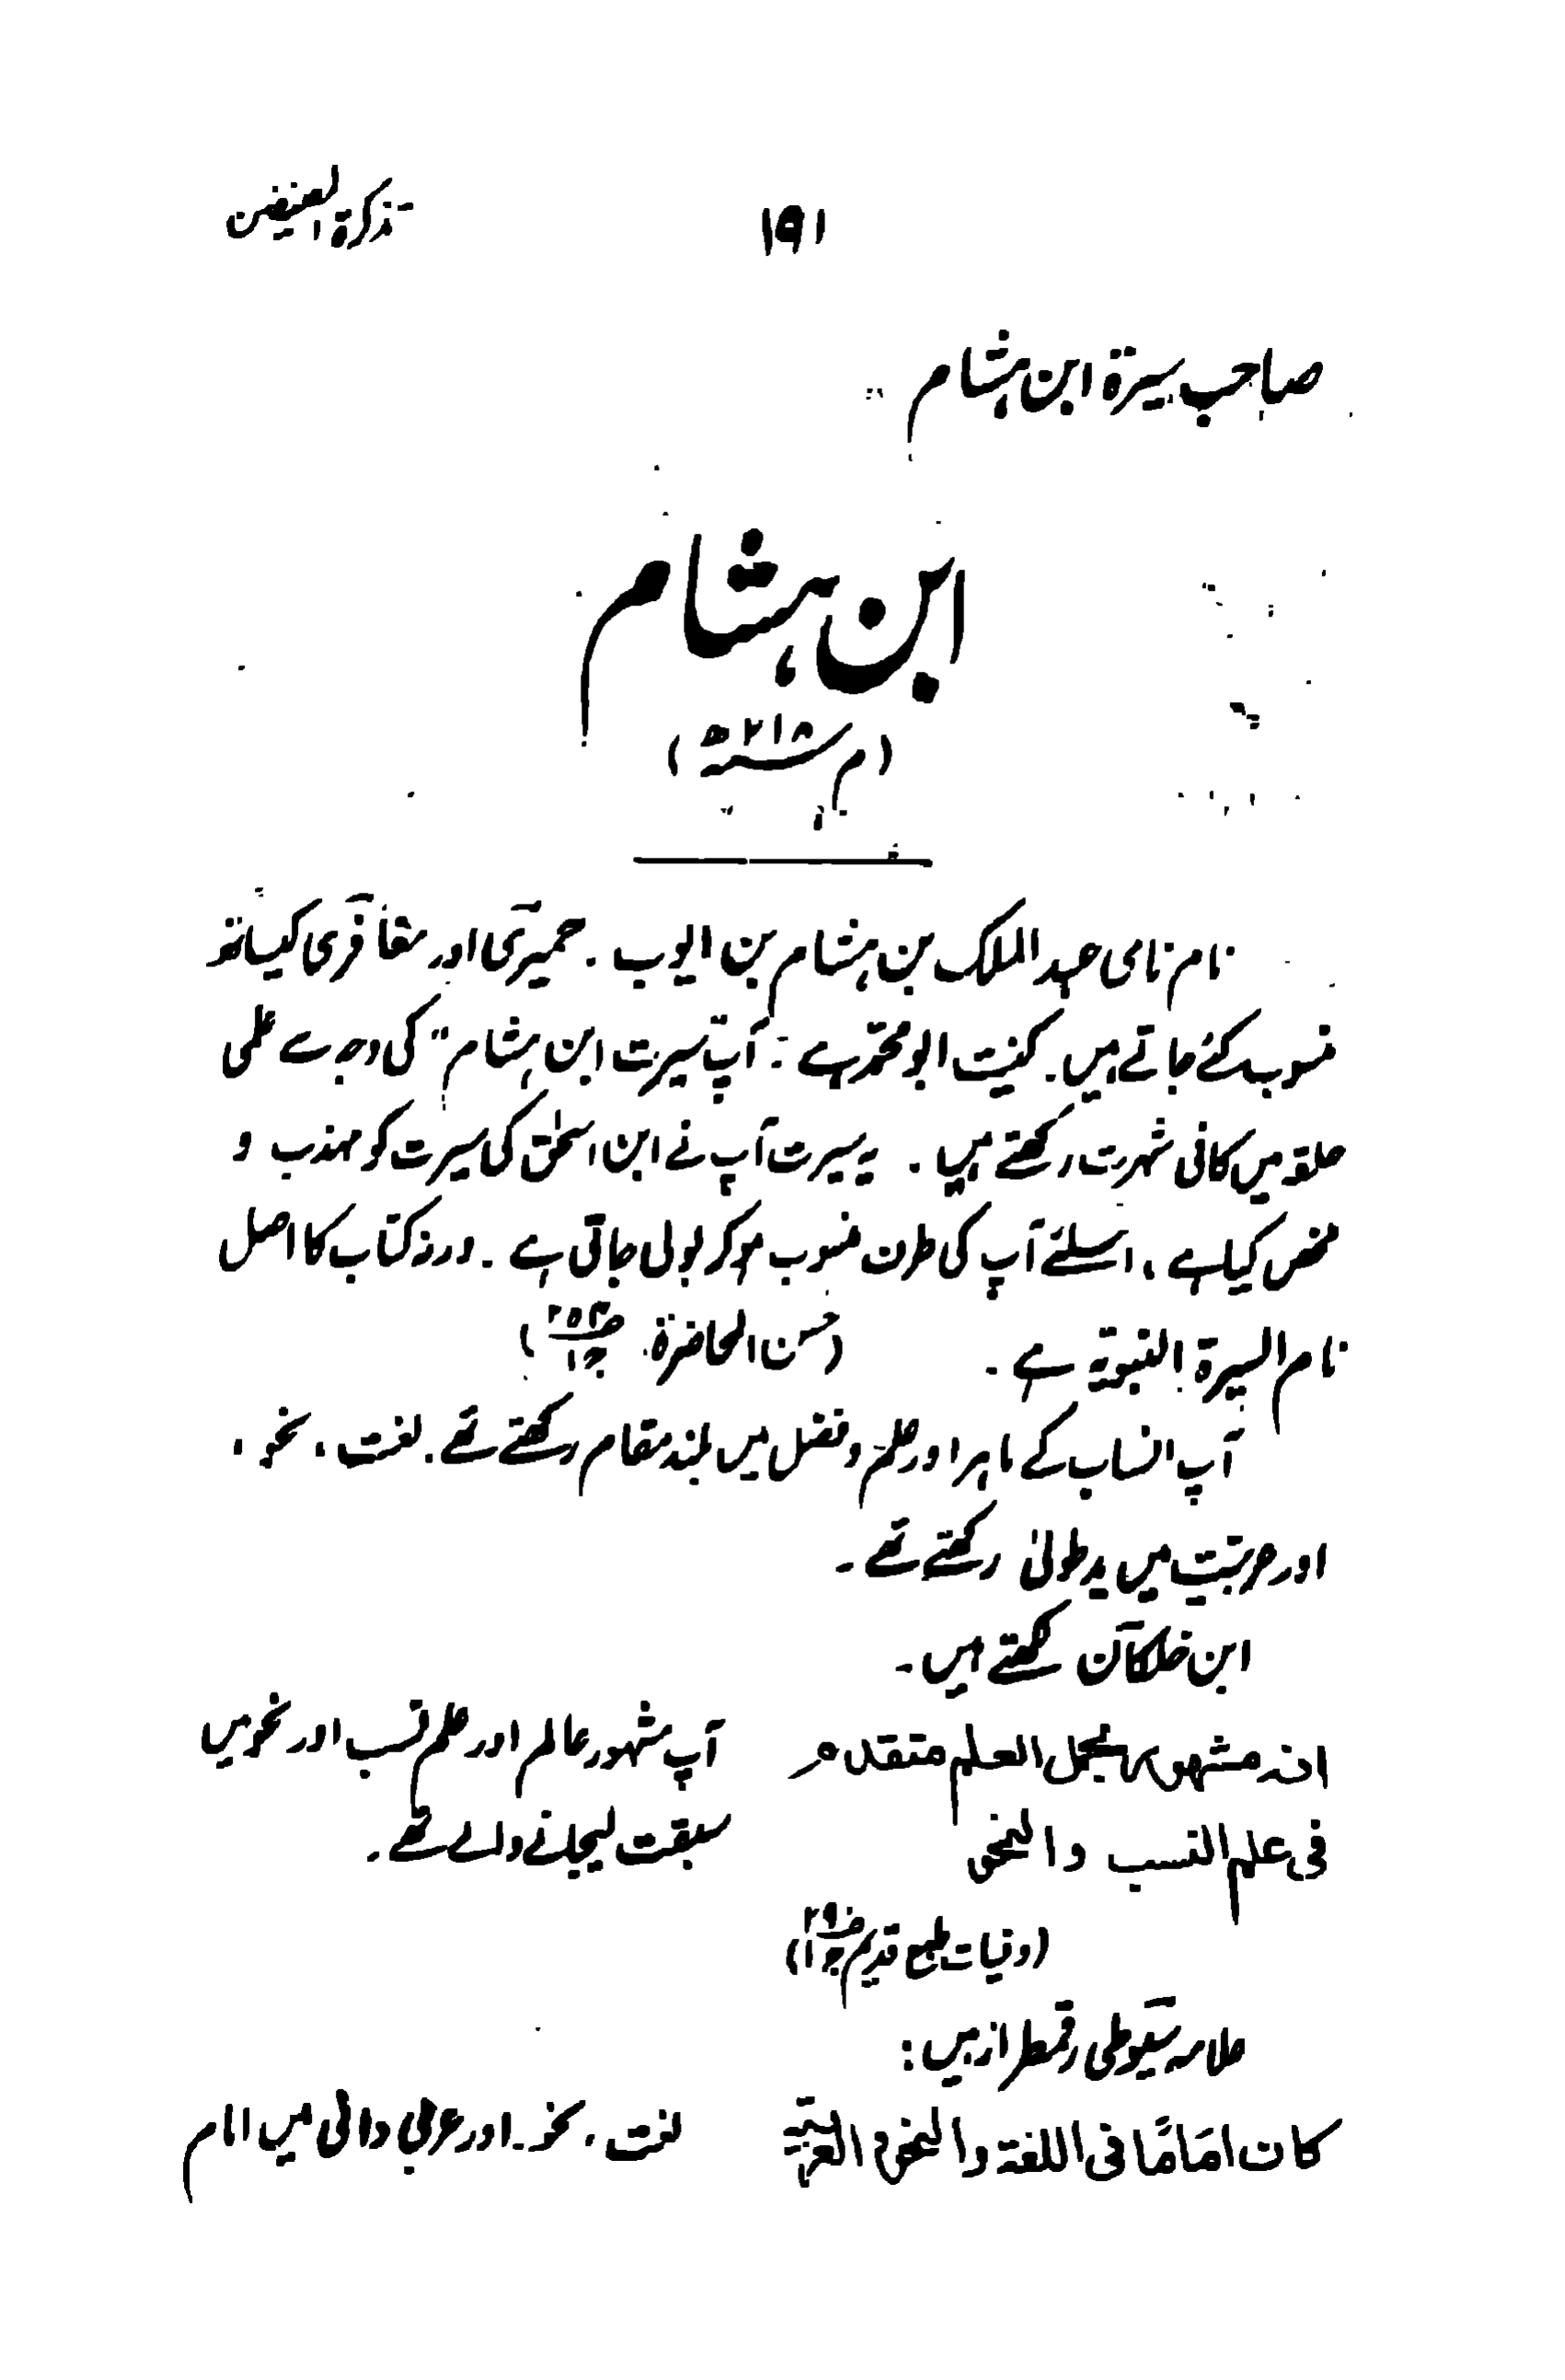 تذکرۃ المصنفین
۱۹۱
صاحب سیرۃ ابن ہشام
ابن ہشام
(م ۲۱۸ھ)
نام نامی عبد الملک بن ہشام بن ایوب ۔ حمیری اور معافری کیساتھ
منسوب کئے جاتے ہیں ۔ کنیت ابو محمد ہے ۔ آپ "سیرت ابن ہشام" کی وجہ سے علمی
حلقہ میں کافی شہرت رکھتے ہیں ۔ یہ سیرت آپ نے ابن اسحٰق کی سیرت کو مہذب و
ملخص کیا ہے ، اسلئے آپ کی طرف منسوب ہوکر بولی جاتی ہے ۔ ورنہ کتاب کا اصل
نام السیرۃ النبویۃ ہے ۔ (حسن المحاضرۃ ج۱)
آپ انساب کے ماہر اور علم و فضل میں بلند مقام رکھتے تھے ۔ لغت ، نحو ،
اور عربیّت میں ید طولیٰ رکھتے تھے ۔
ابن خلکان لکھتے ہیں ۔
انه مشهور بحمل العلم متقدم آپ مشہور عالم اور علم نسب اور نحو میں
فی علم النسب والنحو سبقت لیجانے والے تھے ۔
(وفیات طبع قدیم ص۲۹ ج۱)
علامہ سیوطی رقمطراز ہیں :
كان امامًا فی اللغة والنحو والعربیّة لغت ، نحو ۔ اور عربی دانی میں امام